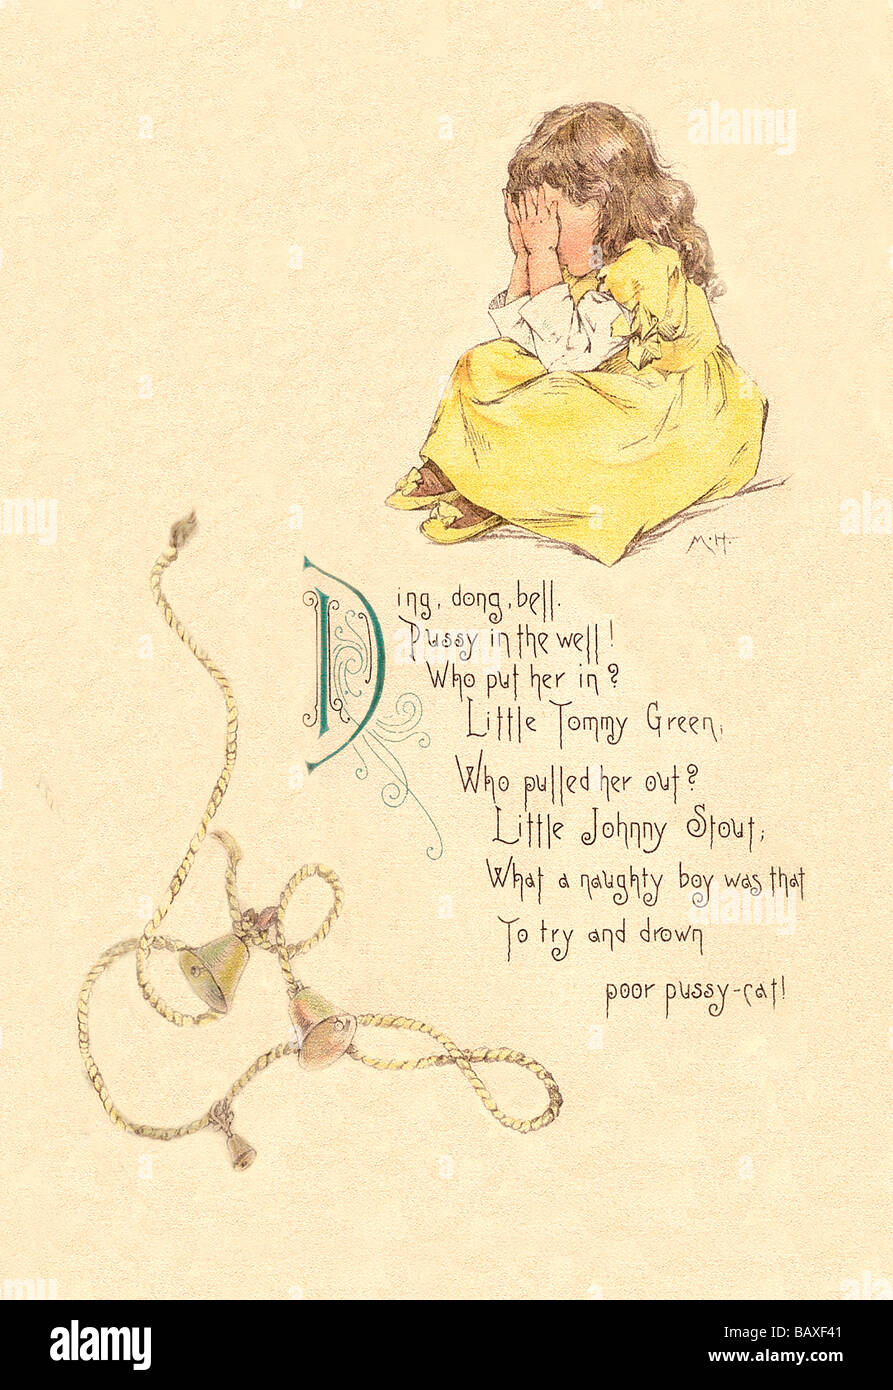 M.H.
Ding, dong, bell.
Pussy in the well!
Who put her in?
Little Tommy Green,
Who pulled her out?
Little Johnny Stout;
What a naughty boy was that
To try and drown
poor pussy-cat!
a
alamy
a
a
a
a
alamy
alamy
a
a
a
a
alamy
a
a
a
alamy
alamy
alamy
Image ID: BAXF41
www.alamy.com